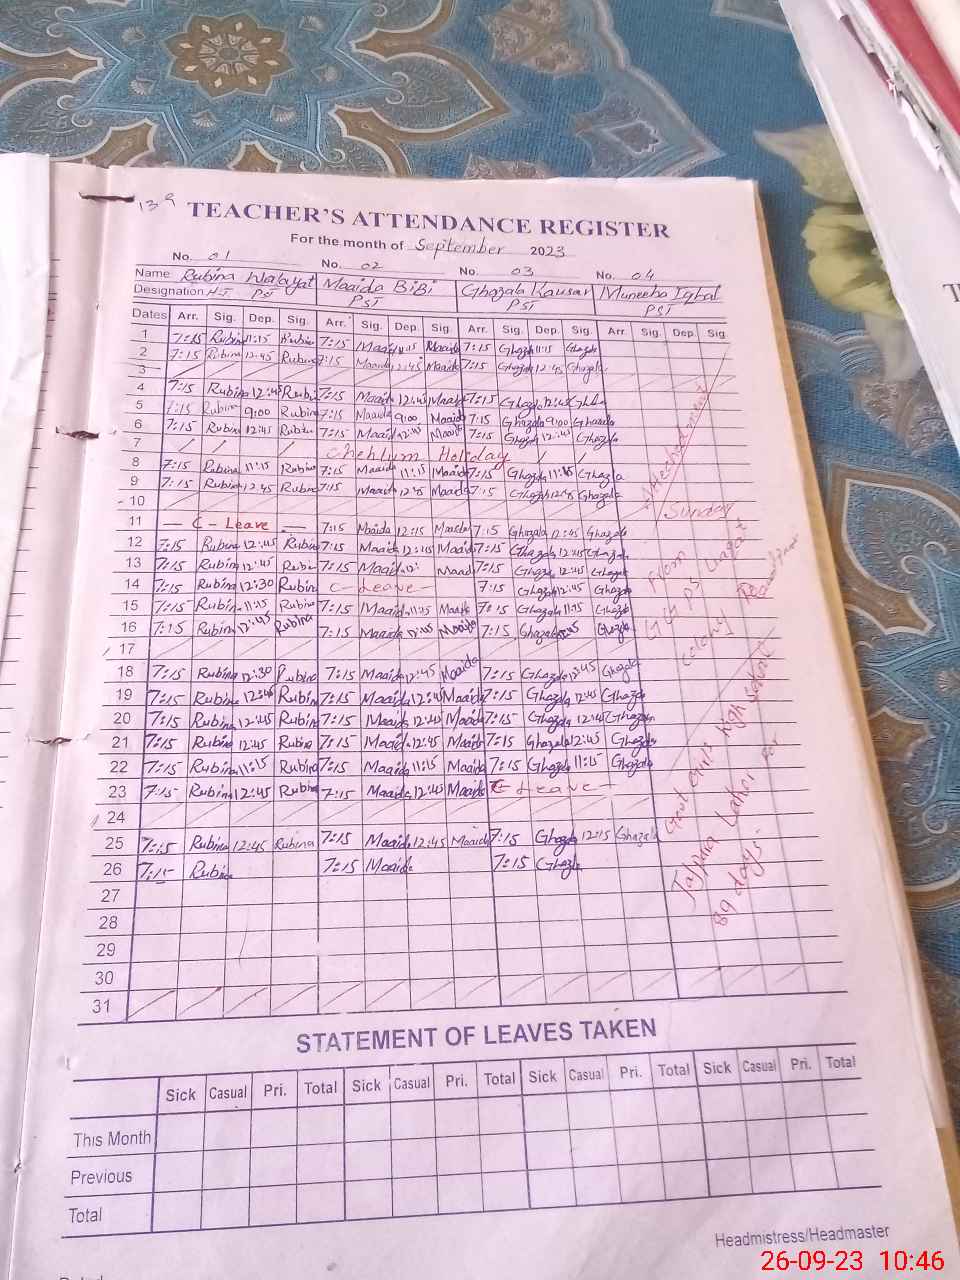 139
TEACHER'S ATTENDANCE REGISTER
For the month of September 2023
No. 01 No. 02 No. 03 No. 04
Name Rubina Walayat Maaida BiBi Ghazala Kausar Muneeba Iqbal
Designation H.T PST PST PST PST
Dates Arr. Sig. Dep. Sig. Arr. Sig. Dep. Sig. Arr. Sig. Dep. Sig. Arr. Sig. Dep. Sig
1 7:15 Rubina 11:15 Rubina 7:15 Maaida 11:15 Maaida 7:15 Ghazala 11:15 Ghazala
2 7:15 Rubina 12:45 Rubina 7:15 Maaida 12:45 Maaida 7:15 Ghazala 12:45 Ghazala
3
4 7:15 Rubina 12:45 Rubina 7:15 Maaida 12:45 Maaida 7:15 Ghazala 12:45 Ghazala
5 7:15 Rubina 9:00 Rubina 7:15 Maaida 9:00 Maaida 7:15 Ghazala 9:00 Ghazala
6 7:15 Rubina 12:45 Rubina 7:15 Maaida 12:45 Maaida 7:15 Ghazala 12:45 Ghazala
7 Chehlum Holiday
8 7:15 Rubina 11:15 Rubina 7:15 Maaida 11:15 Maaida 7:15 Ghazala 11:15 Ghazala
9 7:15 Rubina 12:45 Rubina 7:15 Maaida 12:45 Maaida 7:15 Ghazala 12:45 Ghazala
10 Sunday
11 — C - Leave — 7:15 Maaida 12:15 Maaida 7:15 Ghazala 12:45 Ghazala
12 7:15 Rubina 12:45 Rubina 7:15 Maaida 12:45 Maaida 7:15 Ghazala 12:45 Ghazala
13 7:15 Rubina 12:45 Rubina 7:15 Maaida 12: Maaida 7:15 Ghazala 12:45 Ghazala
14 7:15 Rubina 12:30 Rubina C - Leave - 7:15 Ghazala 12:45 Ghazala
15 7:15 Rubina 11:15 Rubina 7:15 Maaida 11:15 Maaida 7:15 Ghazala 11:15 Ghazala
16 7:15 Rubina 12:45 Rubina 7:15 Maaida 12:45 Maaida 7:15 Ghazala 12:45 Ghazala
17
18 7:15 Rubina 12:30 Rubina 7:15 Maaida 12:45 Maaida 7:15 Ghazala 12:45 Ghazala
19 7:15 Rubina 12:45 Rubina 7:15 Maaida 12:45 Maaida 7:15 Ghazala 12:45 Ghazala
20 7:15 Rubina 12:45 Rubina 7:15 Maaida 12:45 Maaida 7:15 Ghazala 12:45 Ghazala
21 7:15 Rubina 12:45 Rubina 7:15 Maaida 12:45 Maaida 7:15 Ghazala 12:45 Ghazala
22 7:15 Rubina 11:15 Rubina 7:15 Maaida 11:15 Maaida 7:15 Ghazala 11:15 Ghazala
23 7:15 Rubina 12:45 Rubina 7:15 Maaida 12:45 Maaida C - Leave -
24
25 7:15 Rubina 12:45 Rubina 7:15 Maaida 12:45 Maaida 7:15 Ghazala 12:15 Ghazala
26 7:15 Rubina 7:15 Maaida 7:15 Ghazala
27
28
29
30
31
From
GGPS
colony
Govt Girls High school
Lahore for
89 days.
STATEMENT OF LEAVES TAKEN
Sick Casual Pri. Total Sick Casual Pri. Total Sick Casual Pri. Total Sick Casual Pri. Total
This Month
Previous
Total
Headmistress/Headmaster
26-09-23 10:46